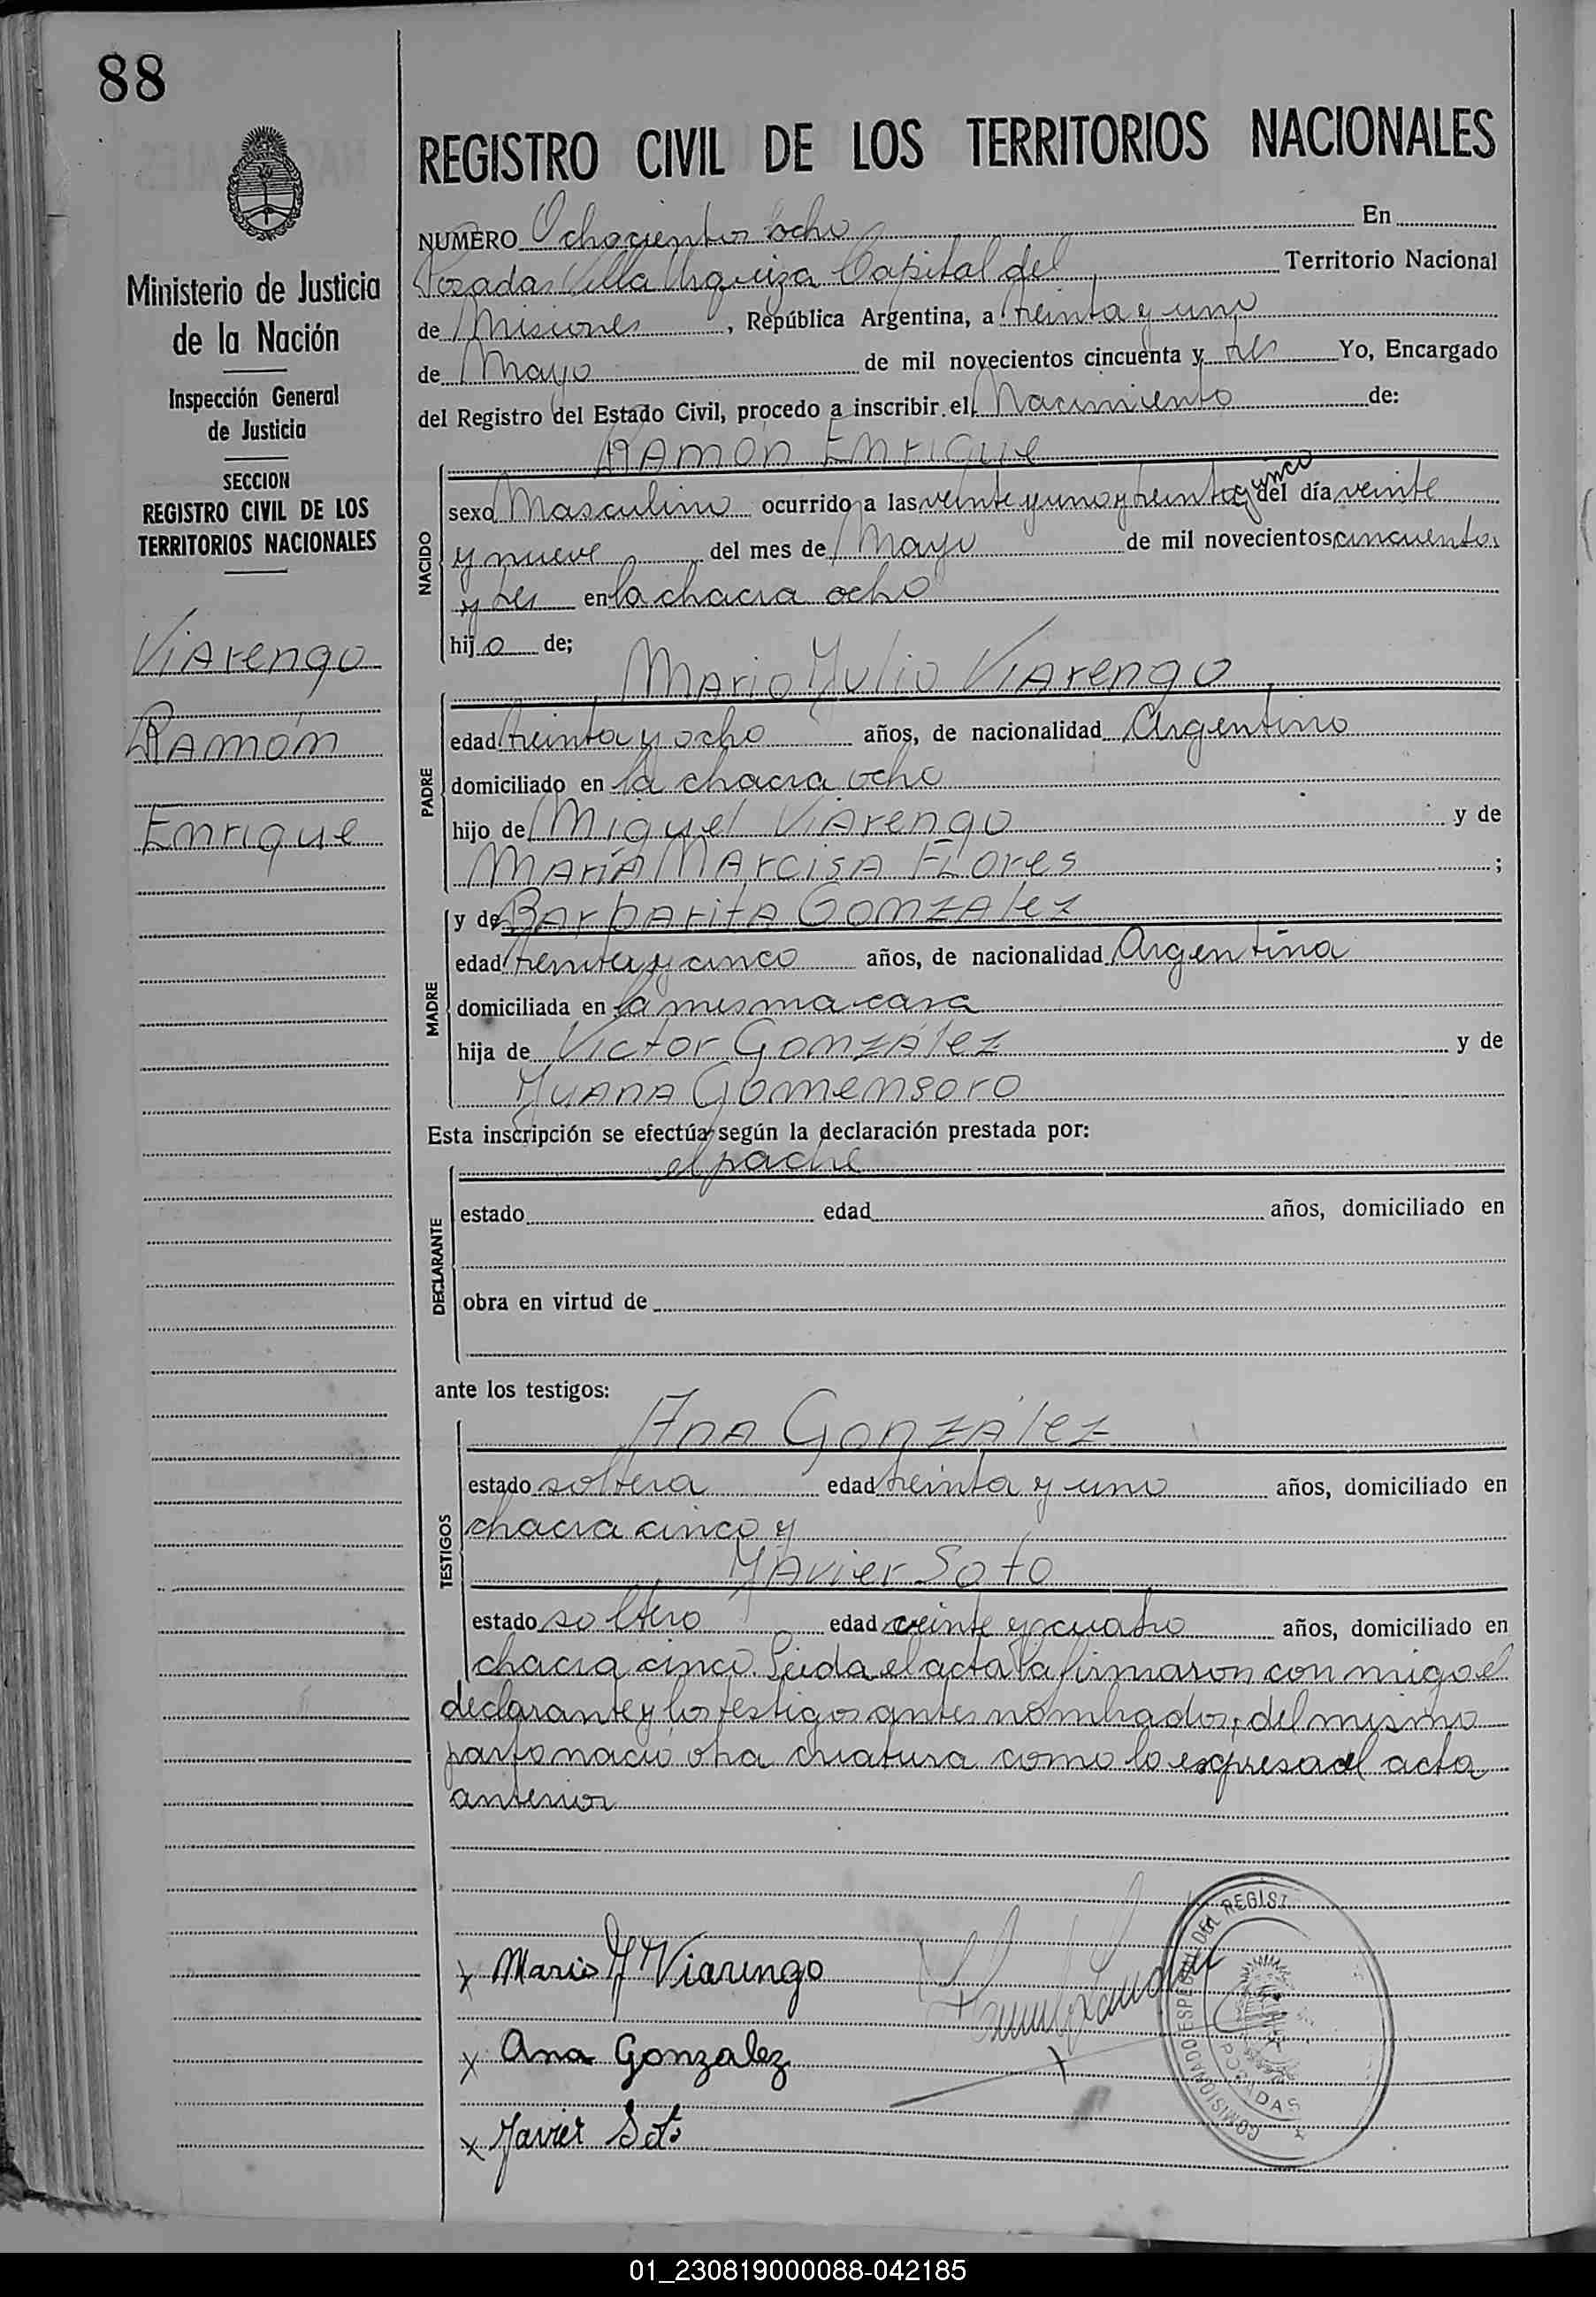 88
REGISTRO CIVIL DE LOS TERRITORIOS NACIONALES
Ministerio de Justicia
de la Nación
Inspección General
de Justicia
SECCION
REGISTRO CIVIL DE LOS
TERRITORIOS NACIONALES
Viarengo
Ramón
Enrique
NUMERO Ochocientos ocho En
Posadas Villa Urquiza Capital del Territorio Nacional
de Misiones, República Argentina, a treinta y uno
de Mayo de mil novecientos cincuenta y tres Yo, Encargado
del Registro del Estado Civil, procedo a inscribir el Nacimiento de:
Ramon Enrique
NACIDO
sexo Masculino ocurrido a las veinte y uno y treinta y cinco del día veinte
y nueve del mes de Mayo de mil novecientos cincuenta
y tres en la chacra ocho
hijo de;
Mario Julio Viarengo
PADRE
edad treinta y ocho años, de nacionalidad Argentino
domiciliado en la chacra ocho
hijo de Miguel Viarengo y de
María Narcisa Flores ;
y de Barbarita Gonzalez
MADRE
edad treinta y cinco años, de nacionalidad Argentina
domiciliada en la misma casa
hija de Victor González y de
Juana Gomensoro
Esta inscripción se efectúa según la declaración prestada por:
el padre
DECLARANTE
estado edad años, domiciliado en
obra en virtud de
ante los testigos:
Ana González
TESTIGOS
estado soltera edad treinta y uno años, domiciliado en
chacra cinco y
Javier Soto
estado soltero edad veinte y cuatro años, domiciliado en
chacra cinco. Leida el acta la firmaron con migo el
declarante y los testigos antes nombrados; del mismo
parto nació otra criatura como lo expresa el acta
anterior
x Mario J Viarengo
x Ana Gonzalez
x Javier Soto
COMISIONADO ESPECIAL DEL REGIST
POSADAS
01_230819000088-042185